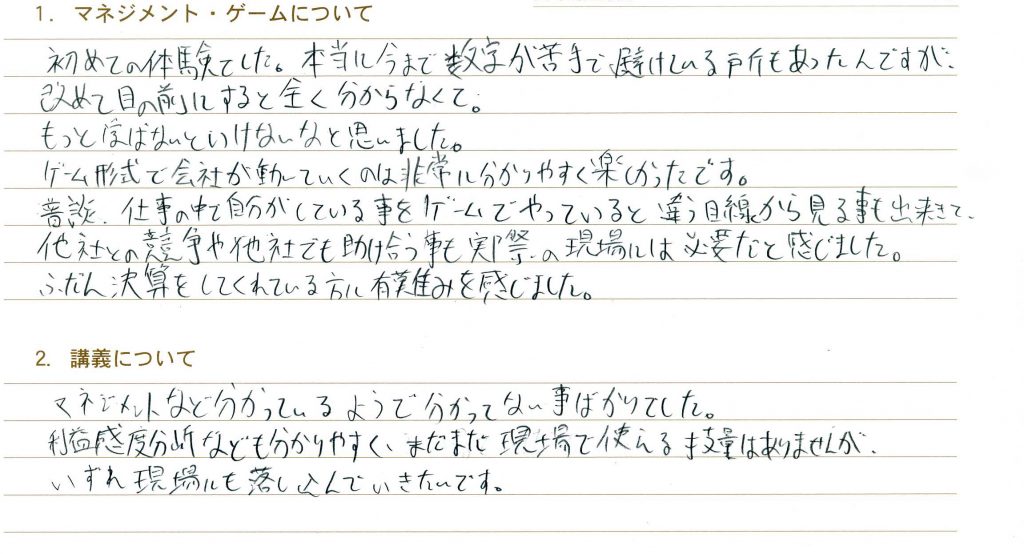 1. マネジメント・ゲームについて
初めての体験でした。本当に今まで数字が苦手で避けている所もあったんですが、
改めて目の前にすると全く分からなくて。
もっと学ばないといけないなと思いました。
ゲーム形式で会社が動いていくのは非常に分かりやすく楽しかったです。
普談、仕事の中で自分がしている事をゲームでやっていると違う目線から見る事も出来きて、
他社との競争や他社でも助け合う事も実際の現場には必要だと感じました。
ふだん決算をしてくれている方に有難みを感じました。
2. 講義について
マネジメントなど分かっているようで分かってない事ばかりでした。
利益感度分析なども分かりやすく、まだまだ現場で使える技量はありませんが、
いずれ現場にも落し込んでいきたいです。